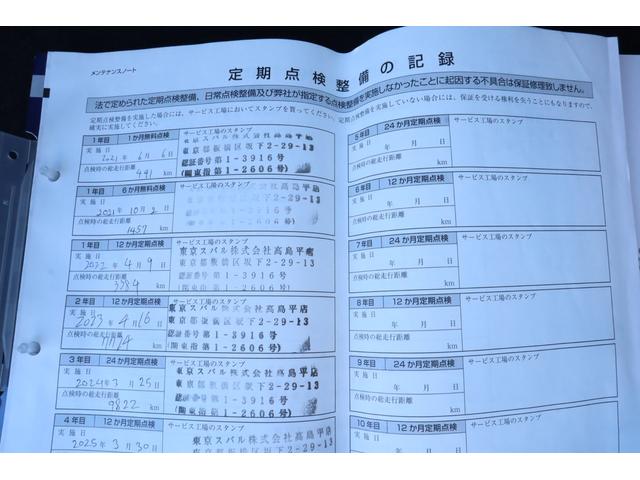 メンテナンスノート
定期点検整備の記録
法で定められた定期点検整備、日常点検整備及び弊社が指定する点検整備を実施しなかったことに起因する不具合は保証修理致しません。
定期点検整備を実施した場合には、サービス工場においてスタンプを買ってください。定期点検整備を実施していない場合には、保証を受ける権利を失うことにもなりますので、
確実に実施してください。
1年目 1か月無料点検 サービス工場のスタンプ
実施日
2021年6月6日
点検時の総走行距離
491 km
東京スバル株式会社高島平店
東京都板橋区坂下2-29-13
認証番号第1-3916号
(関東指第1-2606号)
1年目 6か月無料点検 サービス工場のスタンプ
実施日
2021年10月2日
点検時の総走行距離
1457 km
東京スバル株式会社高島平店
東京都板橋区坂下2-29-13
認証番号第1-3916号
(関東指第1-2606号)
1年目 12か月定期点検 サービス工場のスタンプ
実施日
2022年4月9日
点検時の総走行距離
3984 km
東京スバル株式会社高島平店
東京都板橋区坂下2-29-13
認証番号第1-3916号
(関東指第1-2606号)
2年目 12か月定期点検 サービス工場のスタンプ
実施日
2023年4月16日
点検時の総走行距離
7774 km
東京スバル株式会社高島平店
東京都板橋区坂下2-29-13
認証番号第1-3916号
(関東指第1-2606号)
3年目 24か月定期点検 サービス工場のスタンプ
実施日
2024年3月25日
点検時の総走行距離
9822 km
東京スバル株式会社高島平店
東京都板橋区坂下2-29-13
認証番号第1-3916号
(関東指第1-2606号)
4年目 12か月定期点検 サービス工場のスタンプ
実施日
2025年3月30日
東京スバル株式会社高島平店
東京都板橋区坂下2-29-13
5年目 24か月定期点検 サービス工場のスタンプ
実施日
年 月 日
点検時の総走行距離
km
6年目 12か月定期点検 サービス工場のスタンプ
実施日
年 月 日
点検時の総走行距離
km
7年目 24か月定期点検 サービス工場のスタンプ
実施日
年 月 日
点検時の総走行距離
km
8年目 12か月定期点検 サービス工場のスタンプ
実施日
年 月 日
点検時の総走行距離
km
9年目 24か月定期点検 サービス工場のスタンプ
実施日
年 月 日
点検時の総走行距離
km
10年目 12か月定期点検 サービス工場のスタンプ
実施日
年 月 日